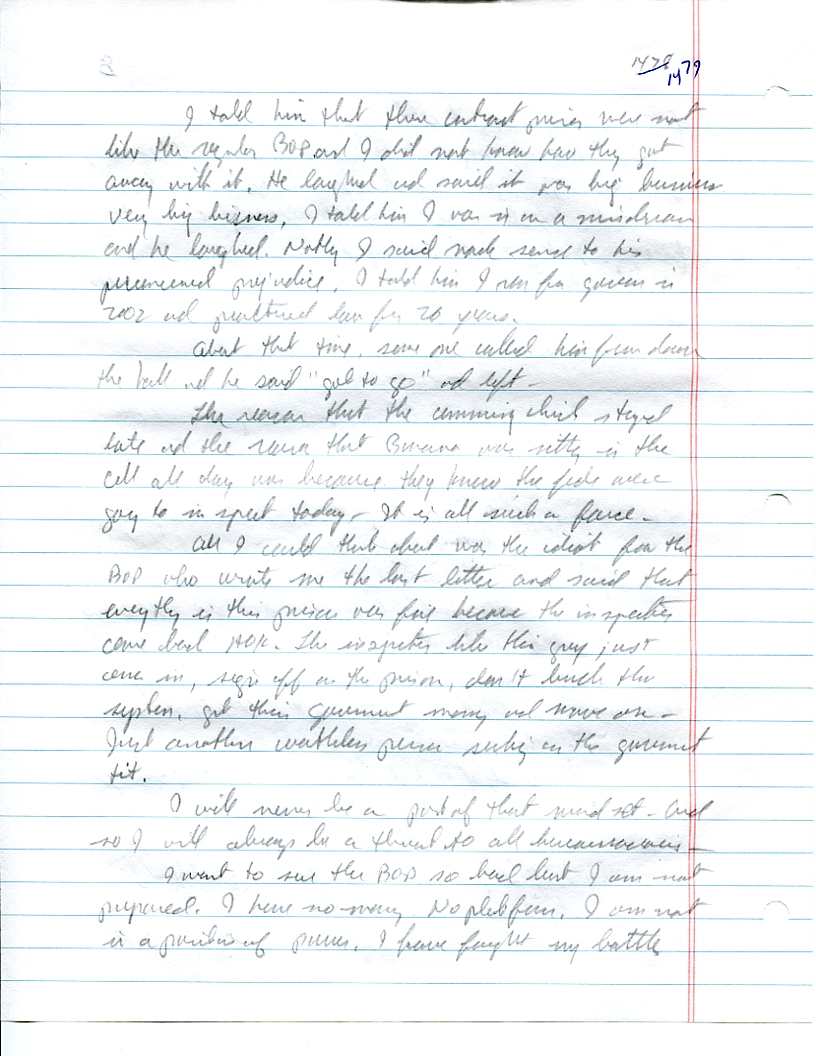 8
1478
1479
I told him that these contract prisons were not
like the regular BOP and I did not know how they got
away with it. He laughed and said it was big business
very big bisness. I told him I was in on a misdemeanor
and he laughed. Nothing I said made sense to his
preconceived prejudice. I told him I ran for governor in
2002 and practiced law for 20 years.
About that time, some one called him from down
the hall and he said "got to go" and left -
The reason that the comming stayed
late and the reason that was sitting in the
cell all day was because they knew the feds were
going to in spect today - It is all such a farce -
All I could think about was the idiot from the
BOP who wrote me the last letter and said that
everything in this prison was fine because the inspecters
come back AOK. The inspectors like this guy just
come in, sign off on the prison, don't buck the
system, get their goverment money and move on -
Just another worthless person sucking on the goverment
tit.
I will never be a part of that mind set - And
so I will always be a threat to all
I want to sue the BOP so bad but I am not
prepared. I have no money. No platform. I am not
in a position of power. I have fought my battles